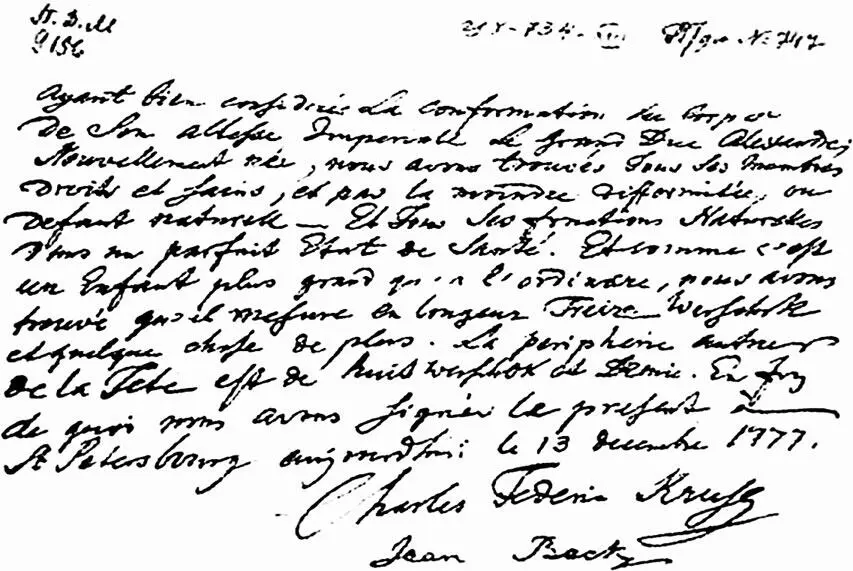 9156
Ayant bien considérée La conformation du Corps
De Son altesse Imperiale Le grand Duc Alexandre,
Nouvellement née, nous avons trouvés Tous Ses Membres
Droits et sains, et pas la moindre difformitée, ou
Defaut naturelle – Et Tous Ses fonctions Naturelles
Dans un parfait Etat de Santé. Et comme c'est
un Enfant plus grand qu'a l'ordinaire, nous avons
trouvé qu'il mesure en longeur Treize Werschok
et quelque chose de plus. La peripherie autour
de la Tete est de huit Werschok et Demie. En foy
de quoi nous avons signés le present à
St Petersbourg aujourdhui le 13 decembre 1777.
Charles Federic Kruse
Jean